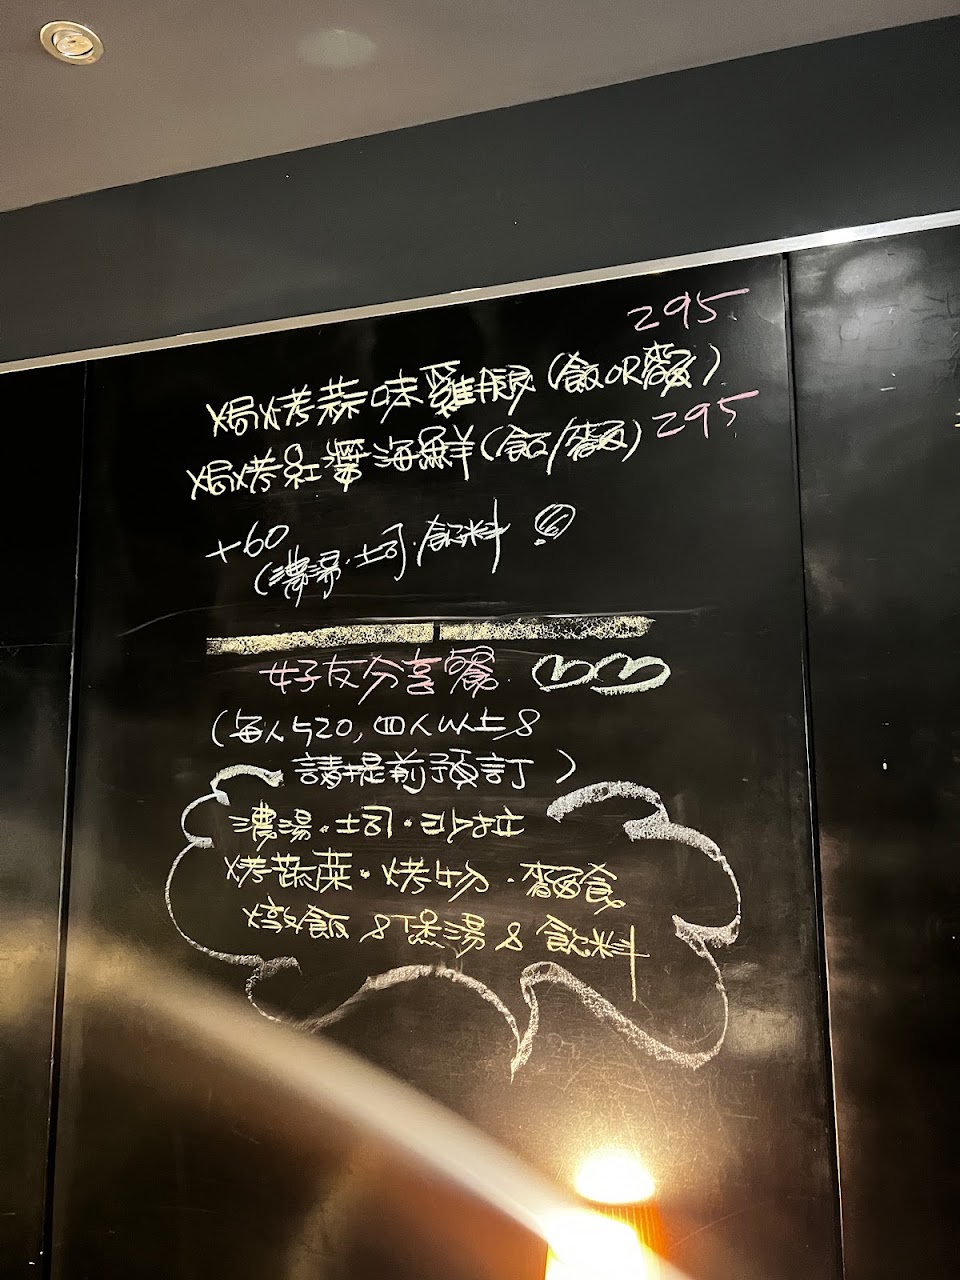 295
焗烤蒜味雞腿(飯OR麵)
焗烤紅醬海鮮(飯/麵) 295
+60
(濃湯.吐司.飲料
好友分享餐
(每人520,四人以上&
請提前預訂)
濃湯.吐司.沙拉
烤蔬菜.烤物.麵食
燉飯&煲湯&飲料